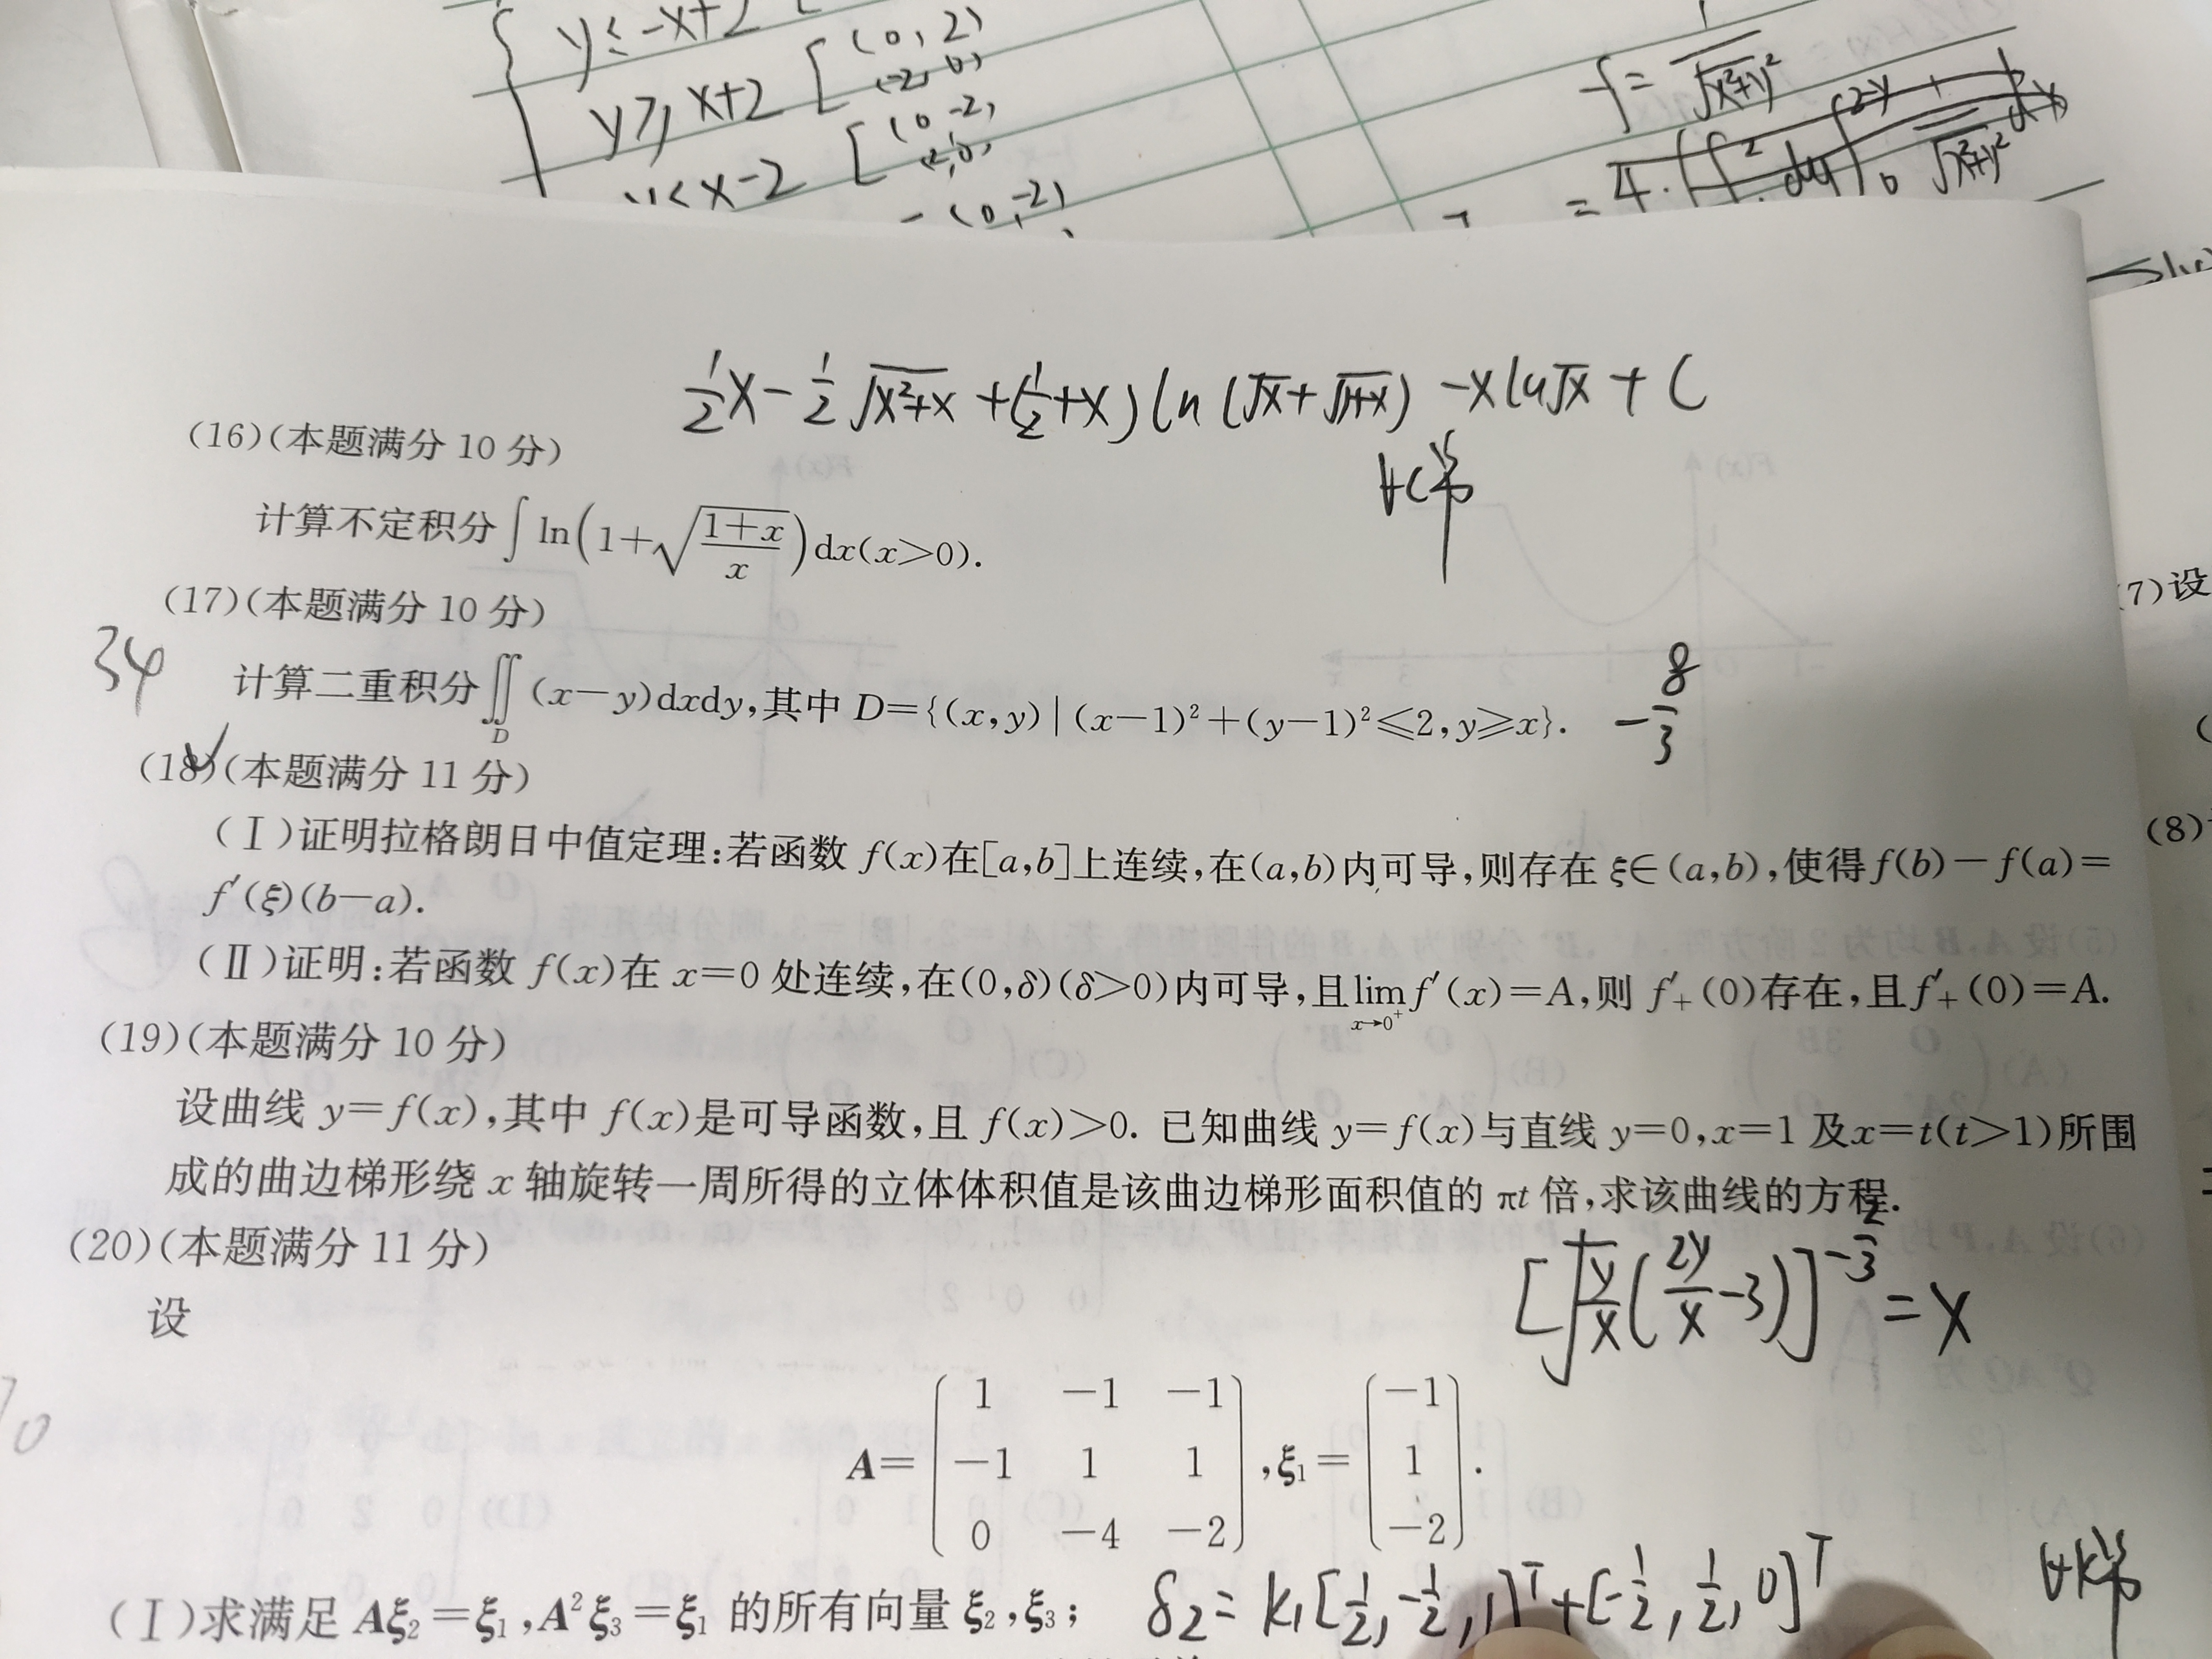 y≤-x+2
y≥x+2 [(0,2)
(-2,0)
y<x-2 [(0,-2)
(2,0)
-(0,-2)
f=1/√(x²+y²)
=4·(∫²dy∫₀^(2-y) 1/√(x²+y²) dx
½x-½√(x²+x)+(½+x)ln(√x+√(1+x))-xln√x+C
(16)(本题满分 10 分)
∀C常
计算不定积分∫ln(1+√((1+x)/x))dx(x>0).
(17)(本题满分 10 分)
34
计算二重积分∬_D(x-y)dxdy,其中 D={(x,y)|(x-1)²+(y-1)²≤2,y≥x}. -8/3
(18)(本题满分 11 分)
(Ⅰ)证明拉格朗日中值定理:若函数 f(x)在[a,b]上连续,在(a,b)内可导,则存在 ξ∈(a,b),使得f(b)-f(a)=
f′(ξ)(b-a).
(Ⅱ)证明:若函数 f(x)在 x=0 处连续,在(0,δ)(δ>0)内可导,且lim_{x→0⁺}f′(x)=A,则 f′₊(0)存在,且f′₊(0)=A.
(19)(本题满分 10 分)
设曲线 y=f(x),其中 f(x)是可导函数,且 f(x)>0. 已知曲线 y=f(x)与直线 y=0,x=1 及x=t(t>1)所围
成的曲边梯形绕 x 轴旋转一周所得的立体体积值是该曲边梯形面积值的 πt 倍,求该曲线的方程.
(20)(本题满分 11 分)
[√(y/x)(2y/x-3)]^(-2/3)=x
设
A=( 1 -1 -1
-1 1 1
0 -4 -2 ),ξ₁=( -1
1
-2 ).
(Ⅰ)求满足 Aξ₂=ξ₁,A²ξ₃=ξ₁ 的所有向量 ξ₂,ξ₃; δ₂=k₁[½,-½,1]ᵀ+[-½,½,0]ᵀ
∀k常
(7)设
(8)